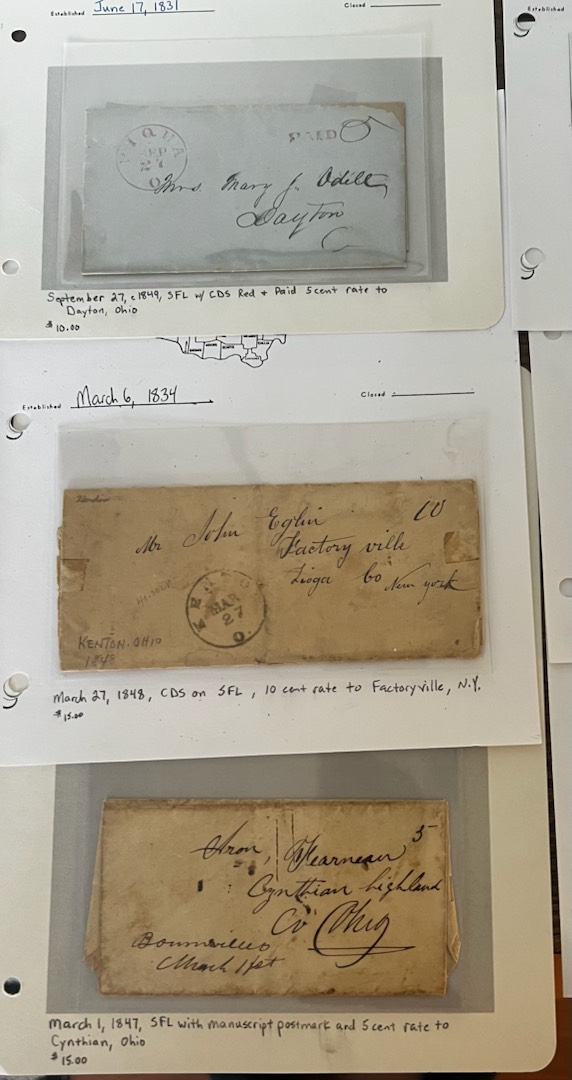 Established June 17, 1831 Closed
Established
PIQUA
SEP
27
O
PAID 5
Mrs. Mary J. Odell
Dayton
O
September 27, c1849, SFL w/ CDS Red + Paid 5 cent rate to
Dayton, Ohio
$10.00
Established March 6, 1834 Closed
10
Mr John Eglin
Factory ville
Tioga Co New york
KENTON
MAR
27
O
KENTON. OHIO
1848
March 27, 1848, CDS on SFL, 10 cent rate to Factoryville, N.Y.
$15.00
5
Cynthian highland
Co Ohio
March 1st
March 1, 1847, SFL with manuscript postmark and 5 cent rate to
Cynthian, Ohio
$15.00